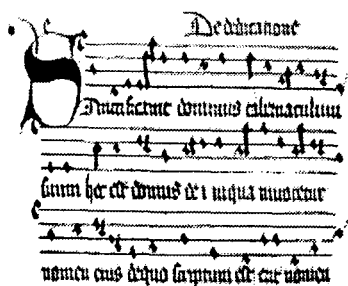 Dedicatione
Sanctificavit dominus tabernaculum
suum hec est domus dei in qua invocetur
nomen eius de quo scriptum est erit nomen